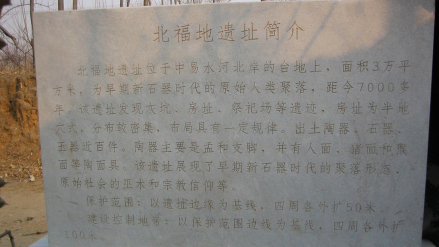 北福地遗址简介
北福地遗址位于中易水河北岸的台地上，面积3万平
方米，为早期新石器时代的原始人类聚落，距今7000多
年。该遗址发现灰坑、房址、祭祀场等遗迹，房址为半地
穴式，分布较密集，布局具有一定规律。出土陶器、石器、
玉器近百件。陶器主要是盂和支脚，并有人面、猪面和猴
面等陶面具。该遗址展现了早期新石器时代的聚落形态、
原始社会的巫术和宗教信仰等。
保护范围：以遗址边缘为基线，四周各外扩50米
建设控制地带：以保护范围边线为基线，四周各外扩